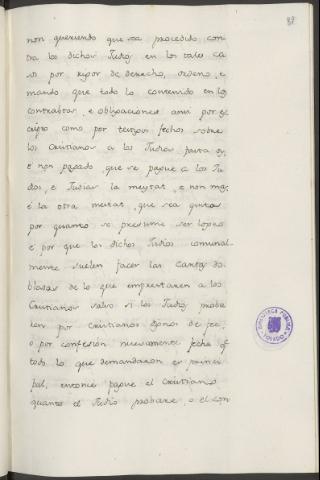 88
non queriendo que sea procedido con-
tra los dichos Judios en los tales ca
sos por rigor de derecho, ordeno, e
mando que todo lo contenido en los
contrabtos, e obligaciones assi por es
cripto como por testigos fechos sobre
los Cristianos a los Judios fasta oy,
e non pagado, que se pague a los Ju
dios, e Judias la meytat, e non mas
e la otra meitat, que sea quita
por quanto se presume ser logro
e por que los dichos Judios comunal-
mente suelen facer las cartas do-
bladas de lo que emprestaren a los
Cristianos salvo si los Judios proba
ren por Cristianos dignos de fee,
o por confesion nuevamente fecha que
todo lo que demandaron es princi
pal, entonce pague el Cristiano
quanto el Judio probare, o el con
BIBLIOTECA PUBLICA
TOLEDO